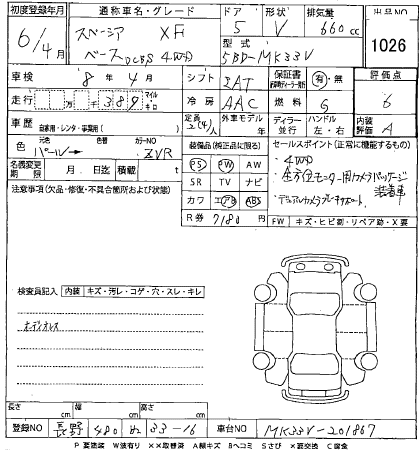 初度登録年月 通称車名・グレード ドア 形状 排気量 出品NO
6/4月 スペーシア XF 5 V 660cc 1026
ベース DCBS 4WD 型式 5BD-MK33V
車検 8年4月 シフト IAT 保証書 有・無 評価点
走行 389 マイル キロ 冷房 AAC 燃料 G 6
車歴 自家用・レンタ・事業用( ) 定員 2(4)人 外車モデル ディーラー 並行 ハンドル 左・右 内装評価 A
色 元色 パール→ カラーNO ZVR 装備品(純正品に限る) セールスポイント(正常に機能するもの)
名義変更期限 月 日迄 積載 t PS PW AW ・4WD
注意事項(欠品・修復・不具合箇所および状態) SR TV ナビ ・全方位モニター用カメラパッケージ装着車
カワ エアB ABS ・デュアルカメラブレーキサポート
R券 7180円 FW キズ・ヒビ割・リペア跡・X要
検査員記入 内装 キズ・汚レ・コゲ・穴・スレ・キレ
オーディオレス
長さ cm 幅 cm 高さ cm
登録NO 長野 480 33-16 車台NO MK33V-201867
P 要塗装 W波有り XX取替済 A線キズ Bヘコミ Sさび X要交換 C腐食